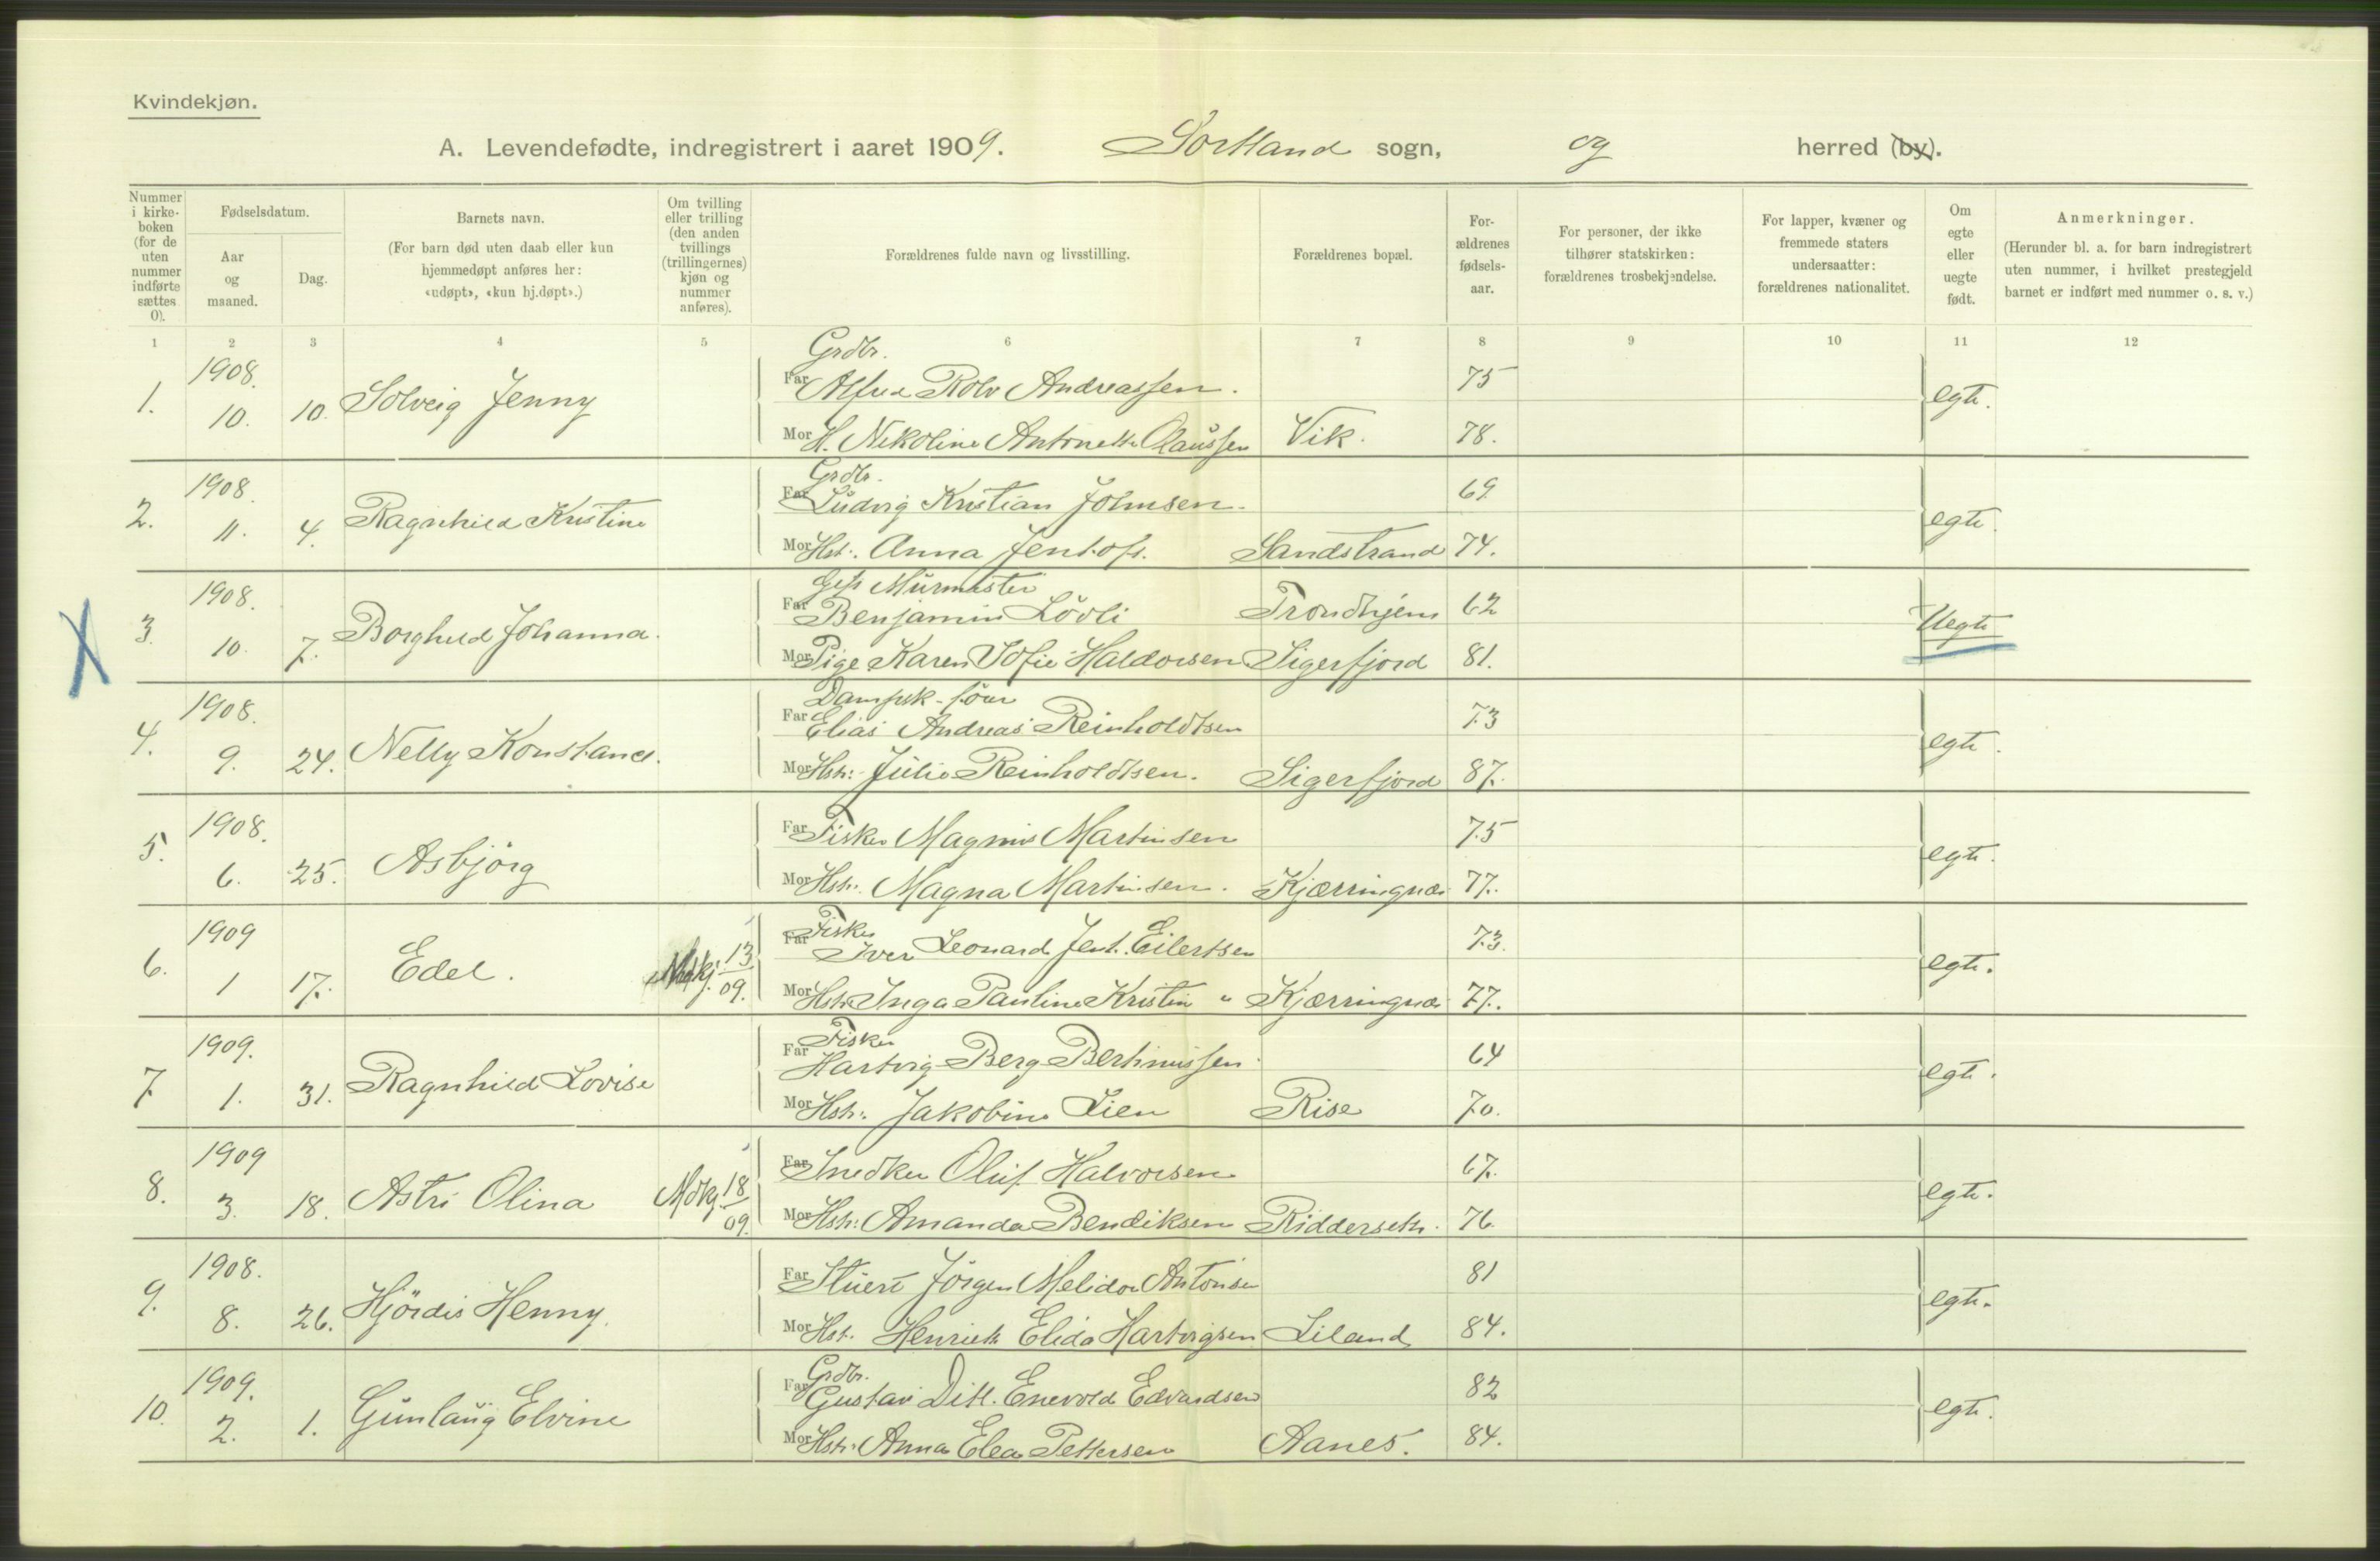 Kvindekjøn.
A. Levendefødte, indregistrert i aaret 1909. Sortland sogn, og herred (by).
Nummer i kirke-boken (for de uten nummer indførte sættes 0).
Fødselsdatum.
Aar og maaned.
Dag.
Barnets navn.
(For barn død uten daab eller kun hjemmedøpt anføres her: «udøpt», «kun hj.døpt».)
Om tvilling eller trilling (den anden tvillings (trillingernes) kjøn og nummer anføres).
Forældrenes fulde navn og livsstilling.
Forældrenes bopæl.
For-ældrenes fødsels-aar.
For personer, der ikke tilhører statskirken: forældrenes trosbekjendelse.
For lapper, kvæner og fremmede staters undersaatter: forældrenes nationalitet.
Om egte eller uegte født.
Anmerkninger.
(Herunder bl. a. for barn indregistrert uten nummer, i hvilket prestegjeld barnet er indført med nummer o. s. v.)
1 2 3 4 5 6 7 8 9 10 11 12
Grdbr.
1908. Far Alfred Rolv Andreassen. 75
1. 10. 10. Solveig Jenny egte.
Mor H. Nekoline Antonette Claussen Vik. 78.
Grdbr.
1908. Far Ludvig Kristian Johnsen. 69
2. 11. 4. Ragnhild Kristine egte.
Mor Hst. Anna Jentoft. Sandstrand 74.
Gift Murmester
1908. Far Benjamin Lövli Trondhjem 62
3. 10. 7. Borghild Johanna. Uegte
Mor Pige Karen Sofie Haldorsen Sigerfjord 81.
Dampsk.-förer
1908. Far Elias Andreas Reinholdtsen 73
4. 9. 24. Nelly Konstance. egte.
Mor Hstr. Julie Reinholdtsen. Sigerfjord 87.
1908. Far Fisker Magnus Martinsen 75
5. 6. 25. Asbjörg egte.
Mor Hstr. Magna Martinsen. Kjærringnæs 77.
Fisker
1909 Far Iver Leonard Jent. Eilertsen 73.
6. 1 17. Edel. Mdkj. 13/09. egte.
Mor Hstr. Inga Pauline Kristin " Kjærringnæs 77.
Fisker
1909. Far Hartvig Berg Bertinussen. 64
7 1. 31. Ragnhild Lovise egte.
Mor Hstr. Jakobine Lien Rise 70.
1909 Far Snedker Oluf Halvorsen 67.
8. 3. 18. Astri Olina Mdkj. 18/09. egte.
Mor Hstr. Amanda Bendiksen Ridderseth. 76.
1908. Far Stuert Jörgen Melidor Antonsen 81
9. 8. 26. Hjördis Henny. egte.
Mor Hst. Henriette Elida Hartvigsen Liland 84.
Grdbr.
1909. Far Gustav Ditl. Enevold Edvardsen 82
10. 2. 1. Gunlaug Elvine egte.
Mor Hstr. Anna Elea Pettersen Aanes. 84.